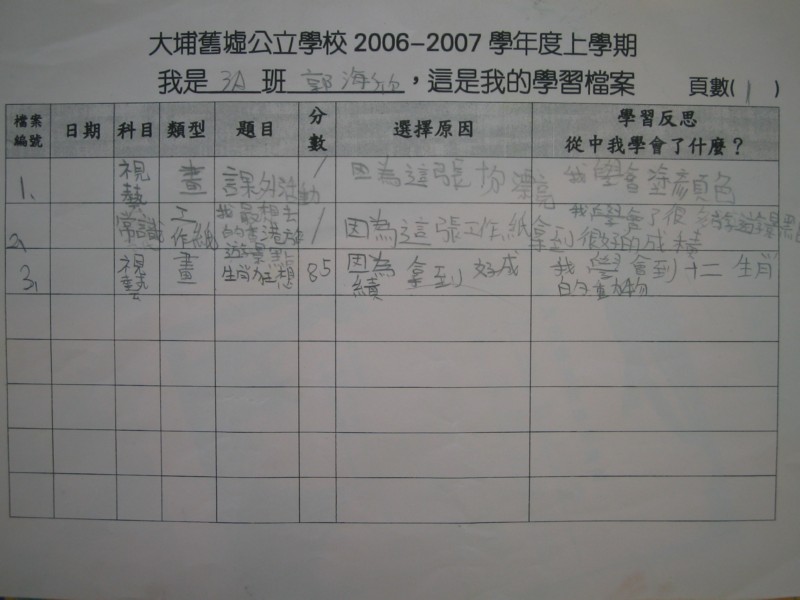 大埔舊墟公立學校 2006-2007 學年度上學期
我是 3A 班 郭海欣，這是我的學習檔案 頁數( 1 )
檔案編號 日期 科目 類型 題目 分數 選擇原因 學習反思 從中我學會了什麼？
1. 視藝 畫 課外活動 / 因為這張 漂亮 我學會塗顏色
2. 常識 工作紙 我最想去的香港旅遊景點 / 因為這張工作紙拿到很好的成績 我學會了很多旅遊景點
3. 視藝 畫 生肖 想 85 因為拿到好成績 我學會到十二生肖的動物